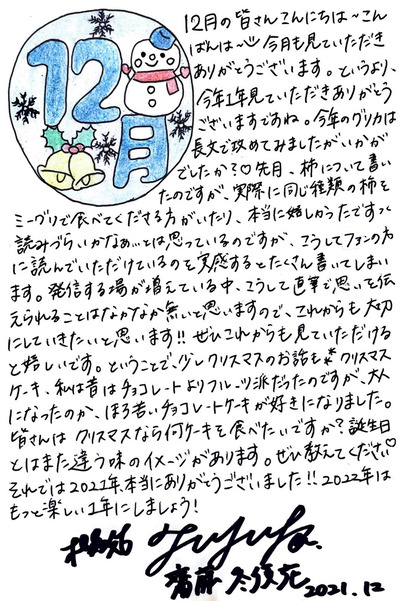 12月
12月の皆さんこんにちは～こん
ばんは～今月も見ていただき
ありがとうございます。というより、
今年1年見ていただきありがとう
ございますですね。今年のグリカは
長文で攻めてみましたがいかが
でしたか?♡先月、柿について書い
たのですが、実際に同じ種類の柿を
ミーグリで食べてくださる方がいたり、本当に嬉しかったですっ
読みづらいかなぁ…とは思っているのですが、こうしてファンの方
に読んでいただけているのを実感するとたくさん書いてしまい
ます。発信する場が増えている中、こうして直筆で思いを伝
えられることはなかなか無いと思いますので、これからも大切
にしていきたいと思います!!ぜひこれからも見ていただける
と嬉しいです。ということで、少しクリスマスのお話も**クリスマス
ケーキ、私は昔はチョコレートよりフルーツ派だったのですが、大人
になったのか、ほろ苦いチョコレートケーキが好きになりました。
皆さんはクリスマスなら何ケーキを食べたいですか?誕生日
とはまた違う味のイメージがあります。ぜひ教えてください♡
それでは2021年、本当にありがとうございました!!2022年は
もっと楽しい1年にしましょう!
齋藤冬優花 2021.12